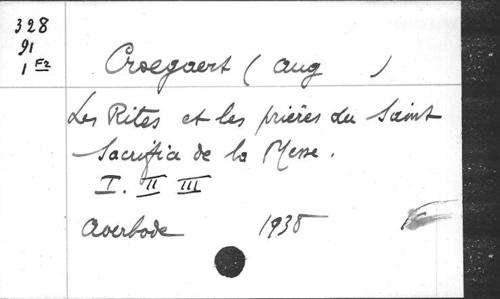 328
91
1 Fz
Croegaert ( Aug )
Les Rites et les prières du Saint
Sacrifice de la Messe.
I. II III
Averbode 1938